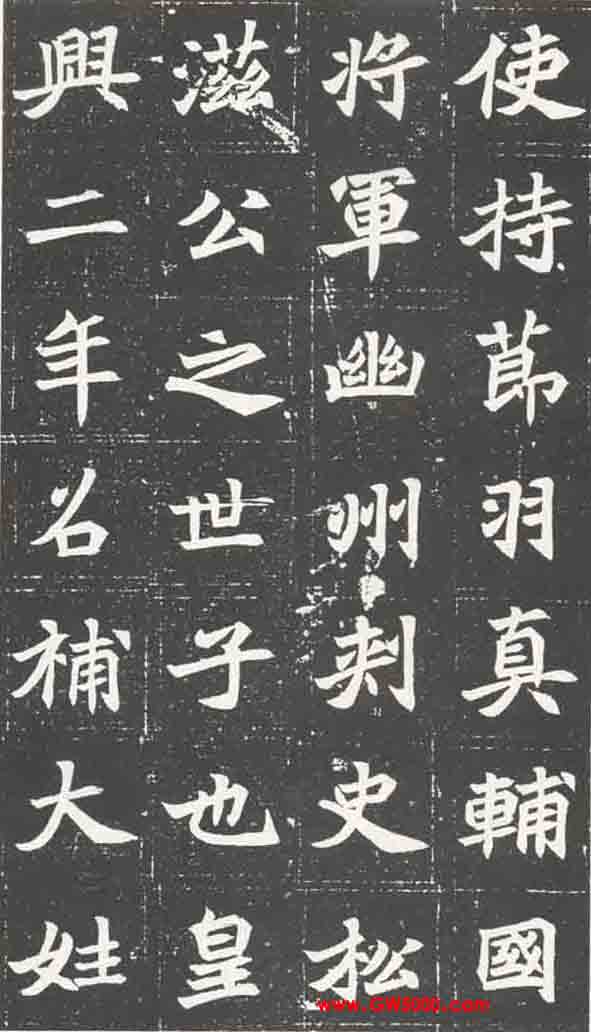 使持莭羽真輔國
将軍幽州刾史松
滋公之世子也皇
興二年召補大姓
www.GW8000.com